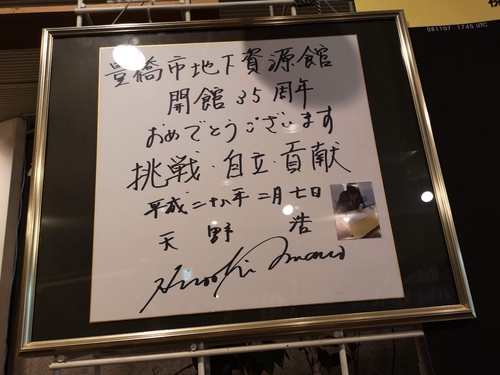 081107 1745 UTC
豊橋市地下資源館
開館35周年
おめでとうございます
挑戦・自立・貢献
平成二十八年二月七日
天野 浩
Hiroshi Amano